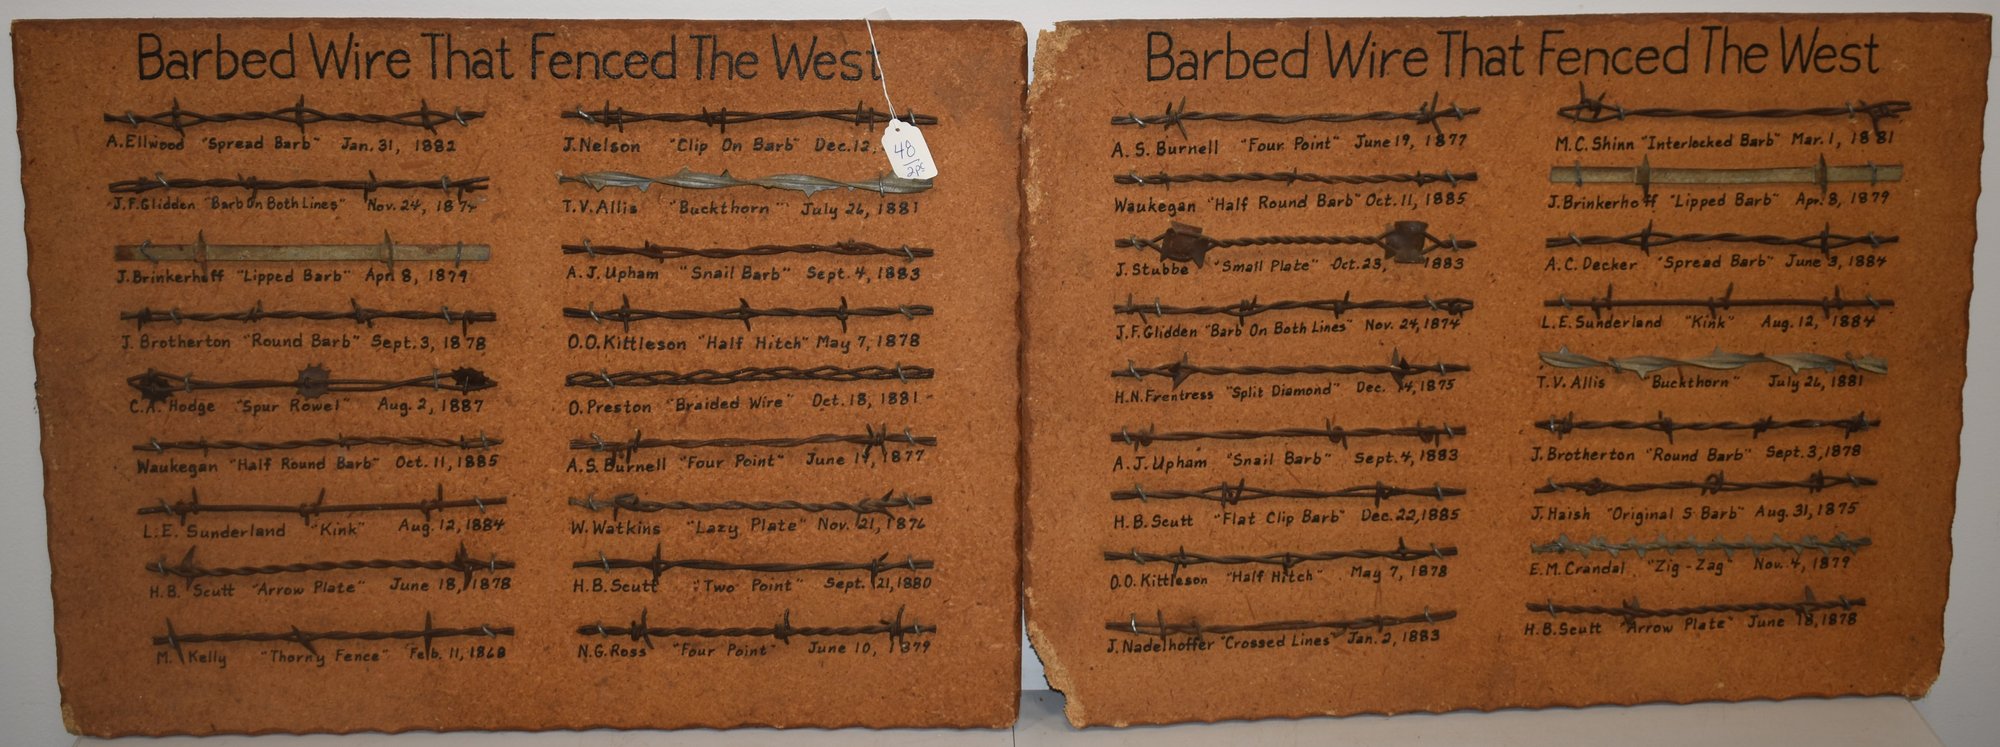 Barbed Wire That Fenced The West
A. Ellwood "Spread Barb" Jan. 31, 1882
J.F. Glidden "Barb On Both Lines" Nov. 24, 1874
J. Brinkerhoff "Lipped Barb" Apr. 8, 1879
J. Brotherton "Round Barb" Sept. 3, 1878
C.A. Hodge "Spur Rowel" Aug. 2, 1887
Waukegan "Half Round Barb" Oct. 11, 1885
L.E. Sunderland "Kink" Aug. 12, 1884
H.B. Scutt "Arrow Plate" June 18, 1878
M. Kelly "Thorny Fence" Feb. 11, 1868
J. Nelson "Clip On Barb" Dec. 12,
T.V. Allis "Buckthorn" July 26, 1881
A.J. Upham "Snail Barb" Sept. 4, 1883
O.O. Kittleson "Half Hitch" May 7, 1878
O. Preston "Braided Wire" Oct. 18, 1881
A.S. Burnell "Four Point" June 19, 1877
W. Watkins "Lazy Plate" Nov. 21, 1876
H.B. Scutt "Two Point" Sept. 21, 1880
N.G. Ross "Four Point" June 10, 1879
48
2ps
Barbed Wire That Fenced The West
A.S. Burnell "Four Point" June 19, 1877
Waukegan "Half Round Barb" Oct. 11, 1885
J. Stubbe "Small Plate" Oct. 23, 1883
J.F. Glidden "Barb On Both Lines" Nov. 24, 1874
H.N. Frentress "Split Diamond" Dec. 14, 1875
A.J. Upham "Snail Barb" Sept. 4, 1883
H.B. Scutt "Flat Clip Barb" Dec. 22, 1885
O.O. Kittleson "Half Hitch" May 7, 1878
J. Nadelhoffer "Crossed Lines" Jan. 2, 1883
M.C. Shinn "Interlocked Barb" Mar. 1, 1881
J. Brinkerhoff "Lipped Barb" Apr. 8, 1879
A.C. Decker "Spread Barb" June 3, 1884
L.E. Sunderland "Kink" Aug. 12, 1884
T.V. Allis "Buckthorn" July 26, 1881
J. Brotherton "Round Barb" Sept. 3, 1878
J. Haish "Original S Barb" Aug. 31, 1875
E.M. Crandal "Zig-Zag" Nov. 4, 1879
H.B. Scutt "Arrow Plate" June 18, 1878